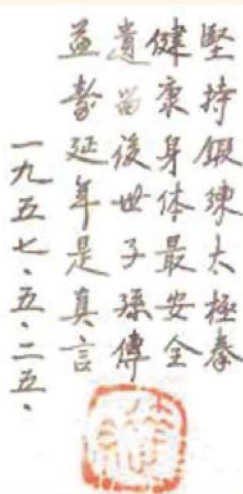 堅持鍛練太極拳
健康身体最安全
遺留後世子孫傳
益壽延年是真言
一九五七、五、二五、